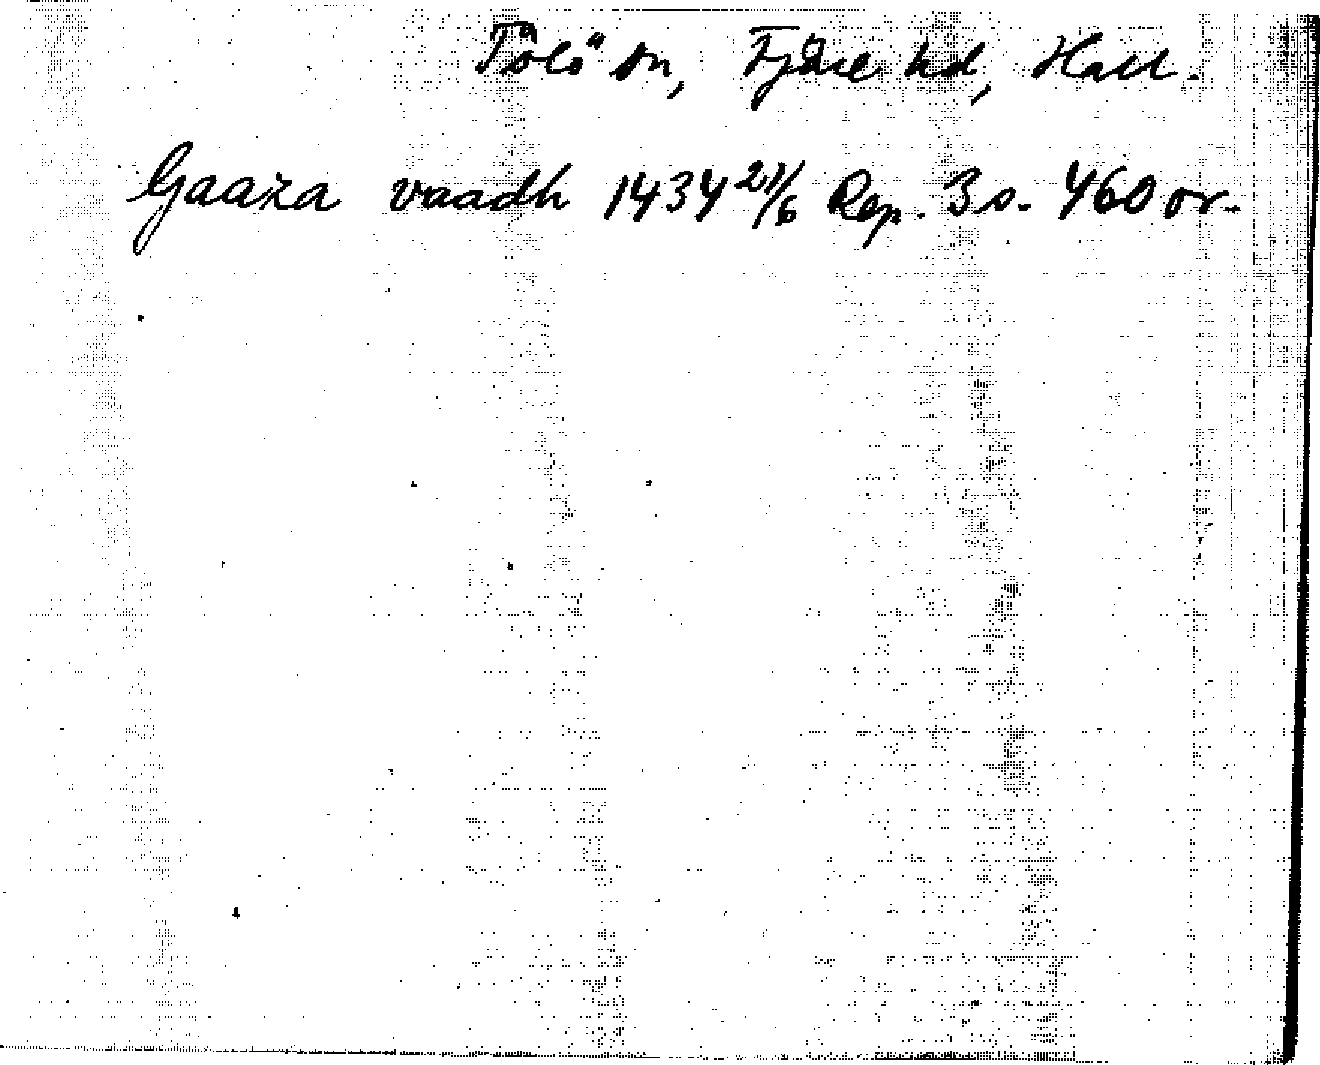 Tölö sn, Fjäre hd, Hall.
Gaaza vaadh 1434 21/6 Rep. 3 s. 460 or.